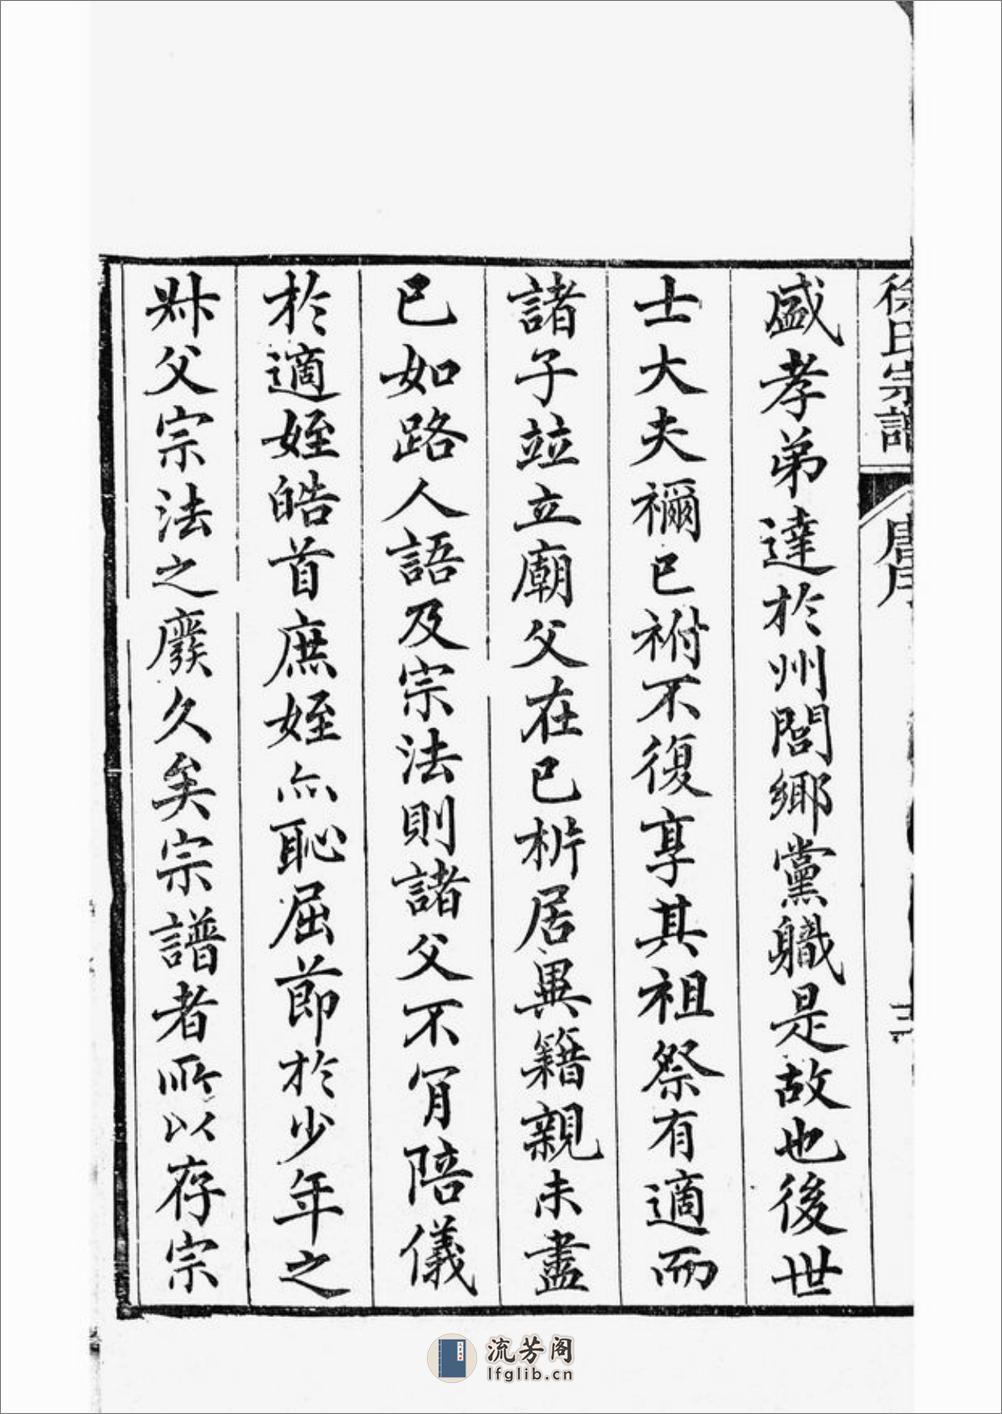 徐氏宗譜
唐序
三
盛孝弟達於州閭鄉黨職是故也後世
士大夫禰已祔不復享其祖祭有適而
諸子竝立廟父在已析居異籍親未盡
已如路人語及宗法則諸父不肎陪儀
於適姪皓首庶姪亦恥屈節於少年之
叔父宗法之廢久矣宗譜者所以存宗
流芳阁
lfglib.cn